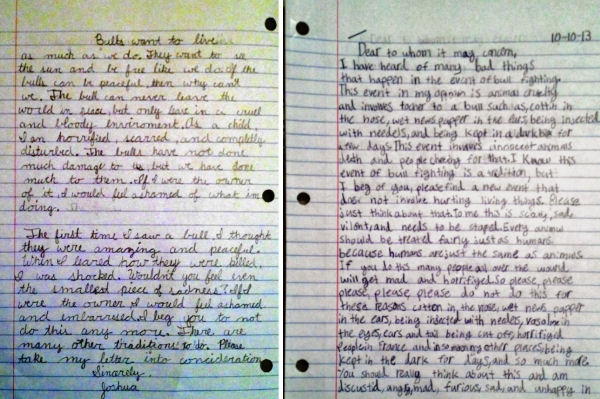 Bulls want to live
as much as we do. They want to see
the sun and be free like we do. If the
bulls can be peaceful, then why can't
we. The bull can never leave the
world in peace, but only leave in a cruel
and bloody enviroment. As a child
I am horrified, scarred, and completly
disturbed. The bulls have not done
much damage to us, but we have done
much to them. If I were the owner
of it, I would feel ashamed of what im
doing.
The first time I saw a bull I thought
they were amazing and peaceful.
When I learned how they were killed,
I was shocked. Wouldn't you feel even
the smallest piece of sadness? If I
were the owner I would feel ashamed
and embarrised. I beg you to not
do this any more. There are
many other traditions to do. Please
take my letter into concideration
Sincerely,
Joshua
10-10-13
Dear to whom it may concern,
I have heard of many bad things
that happen in the event of bull fighting.
This event in my opinion is animal cruelty
and involves torcher to a bull such as, cottin in
the nose, wet news papper in the ears, being injected
with needels, and being kept in a dark box for
a few days. This event invovles innocent animals
deth and people cheering for that. I know this
event of bull fighting is a tradition, but
I beg of you, please find a new event that
does not involve hurting living things. Please
just think about that. To me this is scary, sad,
vilont, and needs to be stoped. Every animal
should be treated fairly just as humans
because humans are just the same as animals
If you do this many people all over the world
will get mad and horrifiyed. So please, please
please, please, please do not do this for
these reasons cotten in the nose, wet news papper
in the ears, being injected with needles, vasaline in
the eyes, ears and tail being cut off, horrifiyd
people in france and in so many other places, being
kept in the dark for days, and so much more.
You should really think about this and am
discustid, angry, mad, furious, sad, and unhappy in